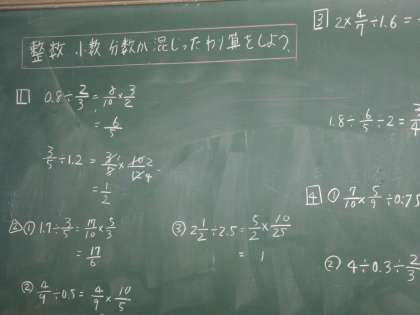 整数 小数 分数が混じったわり算をしよう
1 0.8÷2/3 = 8/10×3/2
= 6/5
3/5÷1.2 = 3/5×10/12
= 1/2
2 ① 1.7÷3/5 = 17/10×5/3
= 17/6
② 4/9÷0.5 = 4/9×10/5
③ 2 1/2÷2.5 = 5/2×10/25
= 1
3 2×4/7÷1.6 =
1.8÷6/5÷2 = 3/4
4 ① 7/10×5/9÷0.75
② 4÷0.3÷2/3